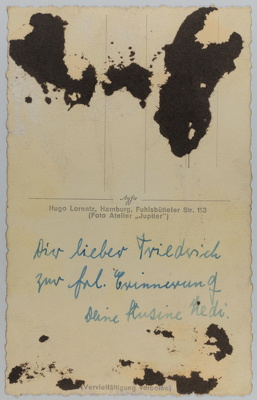 Agfa
Hugo Lorentz, Hamburg, Fuhlsbütteler Str. 113
(Foto Atelier „Jupiter")
Dir lieber Friedrich
zur frl. Erinnerung
Deine Kusine Hedi.
(Vervielfältigung verboten)